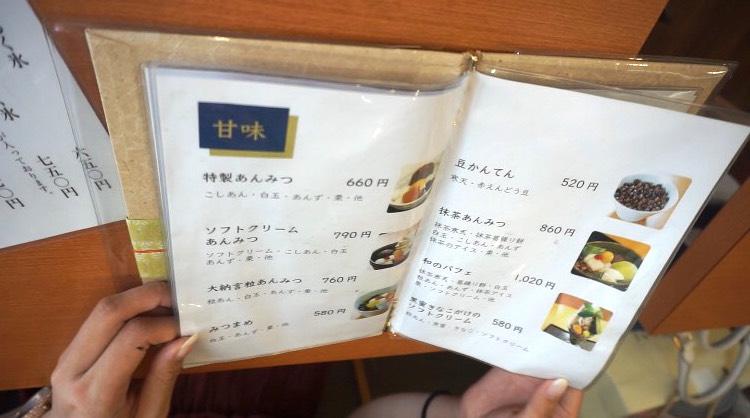 く氷
氷
が入っております。
七五〇円
六五〇円
甘味
特製あんみつ 660円
こしあん・白玉・あんず・栗・他
ソフトクリーム
あんみつ 790円
ソフトクリーム・こしあん・白玉
あんず・栗・他
大納言粒あんみつ 760円
粒あん・白玉・あんず・栗・他
みつまめ 580円
白玉・あんず・栗・他
豆かんてん 520円
寒天・赤えんどう豆
抹茶あんみつ 860円
抹茶寒天・抹茶葛練り餅
白玉・こしあん・あんず
抹茶のアイス・栗・他
和のパフェ 1,020円
抹茶寒天・葛練り餅・白玉
粒あん・あんず・抹茶アイス
栗・ソフトクリーム・他
黒蜜きなこがけの
ソフトクリーム 580円